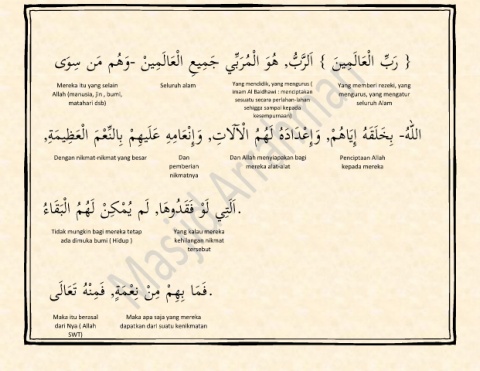 { رَبِّ الْعَالَمِينَ } اَلرَّبُّ, هُوَ الْمُرَبِّي جَمِيعِ الْعَالَمِينْ -وَهُم مَن سِوَى
Yang memberi rezeki, yang mengurus, yang mengatur seluruh Alam
Yang mendidik, yang mengurus ( Imam Al Baidhawi : menciptakan sesuatu secara perlahan-lahan sehingga sampai kepada kesempurnaan)
Seluruh alam
Mereka itu yang selain Allah (manusia, jin , bumi, matahari dsb)
اللهُ- بِخَلْقَهُ إِيَاهُمْ, وَإِعْدَادَهُ لَهُمُ الْآلَاتِ, وَإِنْعَامِهِ عَلَيهِمْ بِالنِّعَمَ الْعَظِيمَةِ,
Penciptaan Allah kepada mereka
Dan Allah menyiapakan bagi mereka alat-alat
Dan pemberian nikmatnya
Dengan nikmat-nikmat yang besar
اَلَتِي لَوْ فَقَدُوهَا, لَم يُمْكِنْ لَهُمُ الْبَقَاءُ.
Yang kalau mereka kehilangan nikmat tersebut
Tidak mungkin bagi mereka tetap ada dimuka bumi ( Hidup )
فَمَا بِهِمْ مِنْ نِعْمَةٍ, فَمِنْهُ تَعَالَى.
Maka apa saja yang mereka dapatkan dari suatu kenikmatan
Maka itu berasal dari Nya ( Allah SWT)